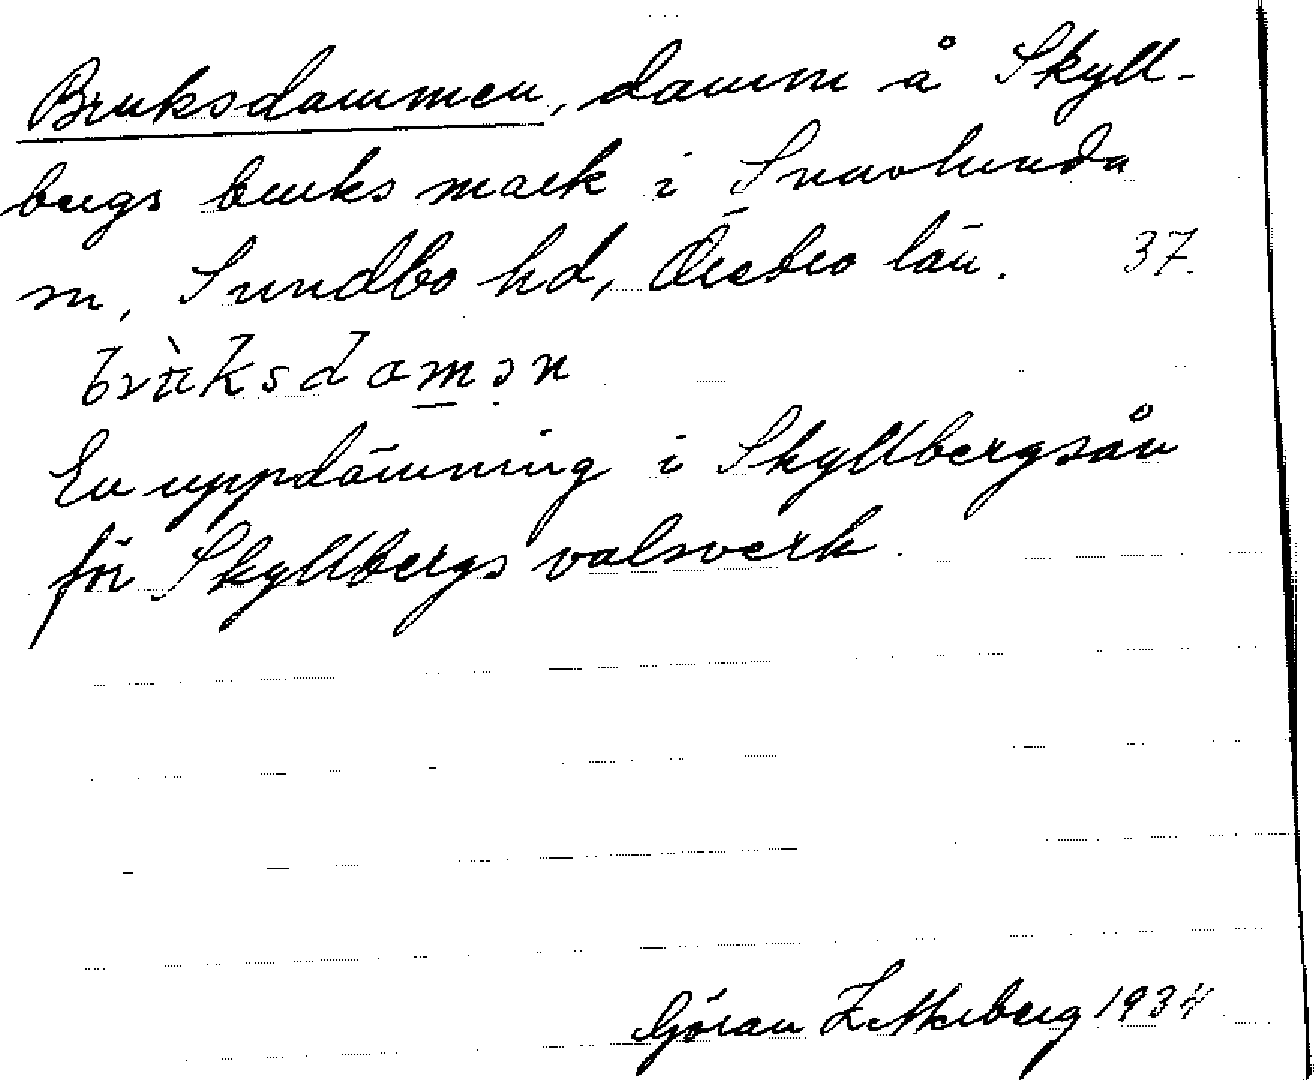 Bruksdammen, damm å Skyll-
bergs bruks mark i Snavlunda
sn, Sundbo hd, Örebro län. 37.
brùksdamən
En uppdämning i Skyllbergsån
för Skyllbergs valsverk.
Göran Zetterberg 1934